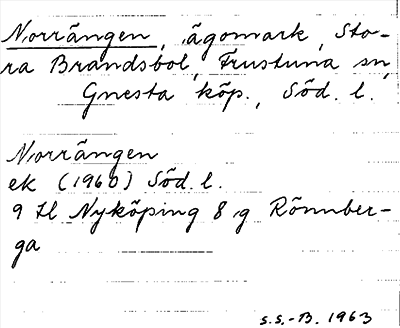 Norrängen, ägomark, Sto-
ra Brandsbol, Frustuna sn,
Gnesta köp., Söd. l.
Norrängen
ek (1960) Söd. l.
9 H Nyköping 8 g Rönnber-
ga
S.S.-B. 1963